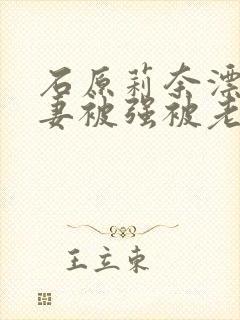 石原莉奈漂
妻被强被老
王立东